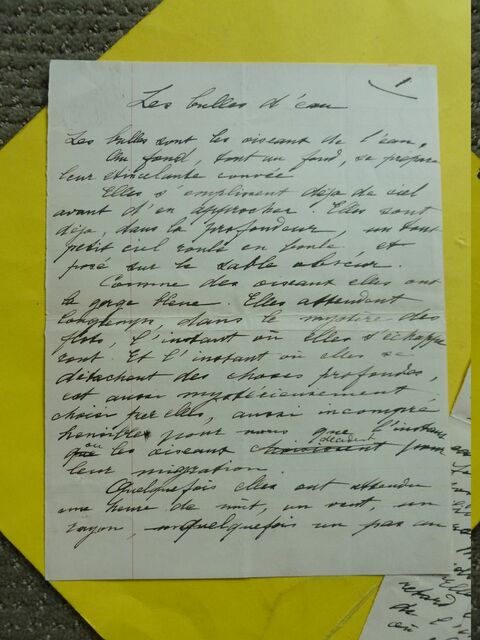 1
Les bulles d'eau
Les bulles sont les oiseaux de l'eau.
Au fond, tout au fond, se prépare
leur étincelante couvée
Elles s'emplissent déjà de ciel
avant d'en approcher. Elles sont
déjà, dans la profondeur, un tout
petit ciel roulé en boule et
posé sur le sable obscur.
Comme des oiseaux elles ont
la gorge bleue. Elles attendent
longtemps, dans le mystère des
flots, l'instant où elles s'échappe
ront. Et l'instant où elles se
détachent des choses profondes,
est aussi mystérieusement
choisi par elles, aussi incompré
hensible pour nous que l'instant
où les oiseaux décident pour
leur migration.
Quelquefois elles ont attendu
une heure de nuit, un vent, un
rayon, quelquefois un pas au
retard
de l'